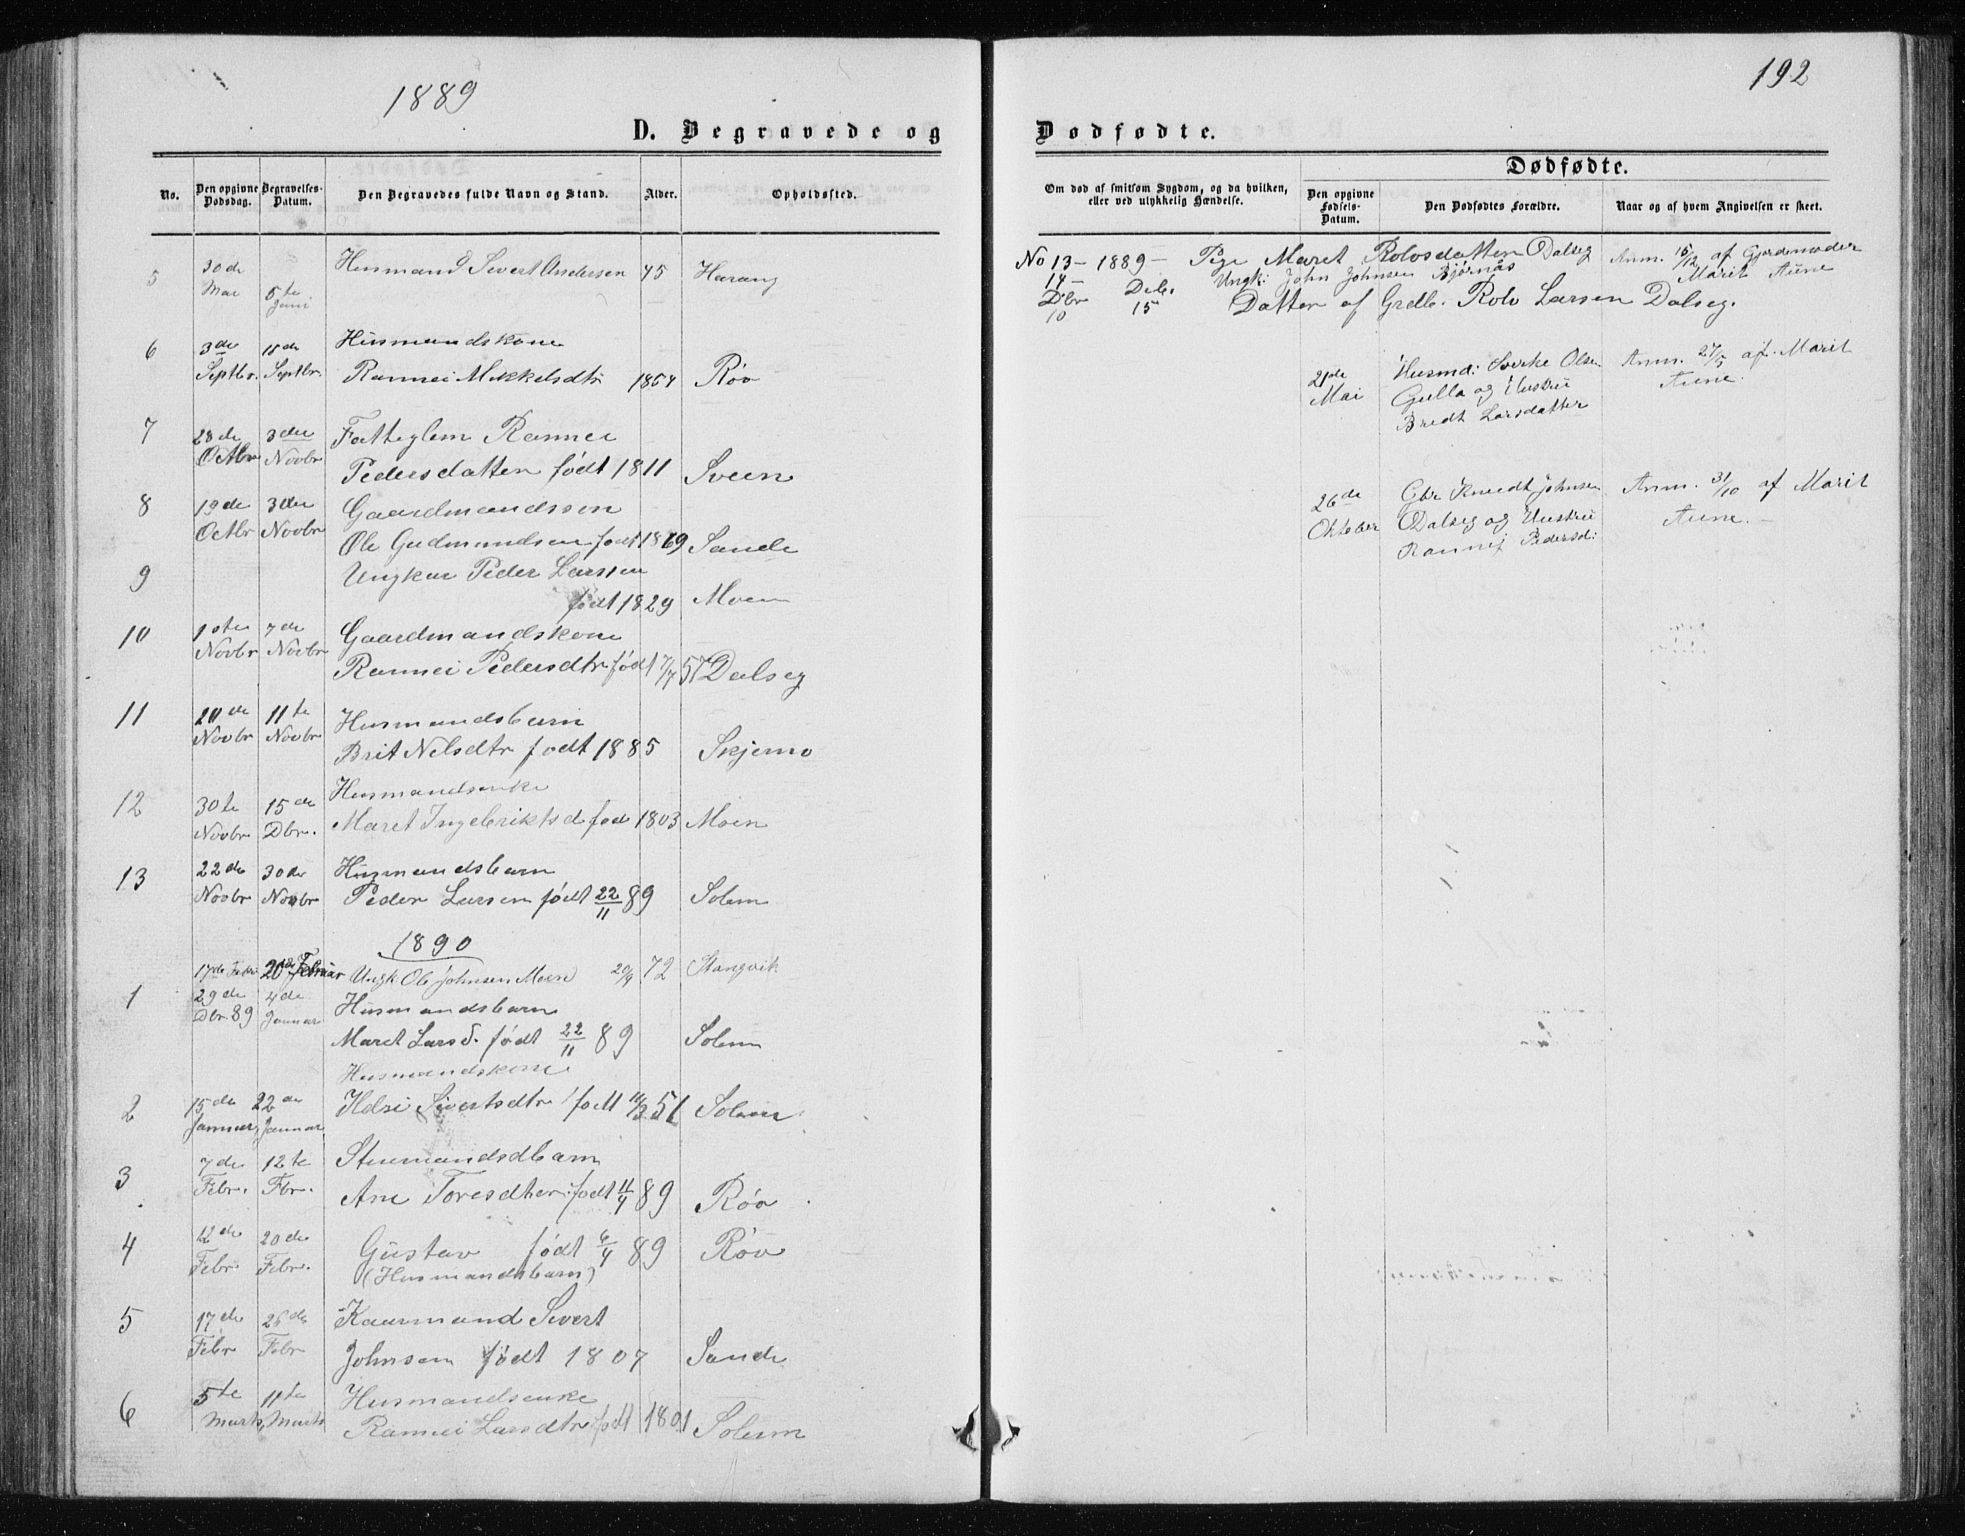 1889
192
D. Begravede og
Dødfødte.
No.
Den opgivne Dødsdag.
Begravelses-Datum.
Den Begravedes fulde Navn og Stand.
Alder.
Opholdssted.
Om død af smitsom Sygdom, og da hvilken, eller ved ulykkelig Hændelse.
Dødfødte.
Den opgivne Fødsels-Datum.
Den Dødfødtes Forældre.
Naar og af hvem Angivelsen er skeet.
5 30de Mai 5te Juni Husmand Sivert Andersen 75 Harang
6 3de Septbr. 15de Septbr. Husmandskone
Rannei Mikkelsdtr 1864 Røv
7 28de Octbr 3die Novbr Fatteglem Rannei
Pedersdatter født 1811 Sveen
8 19de Octbr 3die Novbr Gaardmandssøn
Ole Gudmundsen født 1869 Sande
9 Ungkar Peder Larssen
født 1829 Moen
10 1ste Novbr 7de Novbr Gaardmandskone
Rannei Pedersdtr født 7/7 57 Dalseg
11 Novbr 11te Novbr Husmandsbarn
Brit Nilsdtr født 1885 Skjermo
12 30te Novbr 15de Dbr. Husmandsenke
Maret Ingebriktsd fød 1803 Moen
13 22de Novbr 30de Novbr Husmandsbarn
Peder Larsen født 22/11 89 Solem
1890
17de Febr. Februar Ungk Ole Johnsen Moen 20/9 72 Stangvik
1 29de Dbr. 89 4de Januar Husmandsbarn
Maret Larsd. født 22/11 89 Solem
Husmandskone
2 15de Januar 22de Januar Sivertsdtr født 51 Solem
3 7de Febr. 12te Fbr.
Ane Toresdtter født 11/4 89 Røv
4 12de Febr. 20de Febr. Gustav født 6/4 89 Røv
(Husmandsbarn)
5 17de Febr 26de Febr Kaarmand Sivert
Johnsen født 1807 Sande
6 5te Marts 11te Marts Husmandsenke
Rannei Larsdtr født 1801 Solem
No 13 - 1889 - Pige Maret Rolvsdatter Dalseg Anm. 15/12 af Gjordemoder
14 - Ungk: John Johnsen Bjørnås Marit Aune
Dbr 10 Deb. 15 Datter af Grdb. Rolv Larsen Dalseg.
21de Mai Husmd: Sverke Olsen
Gulla og Hustru
Bredt Larsdatter
Anm. 27/5 af Marit
Aune.
26de Oktober Gbr Knudt Johnsen
Dalseg og Hustru
Rannej Pedersd:
Anm. 31/10 af Marit
Aune.